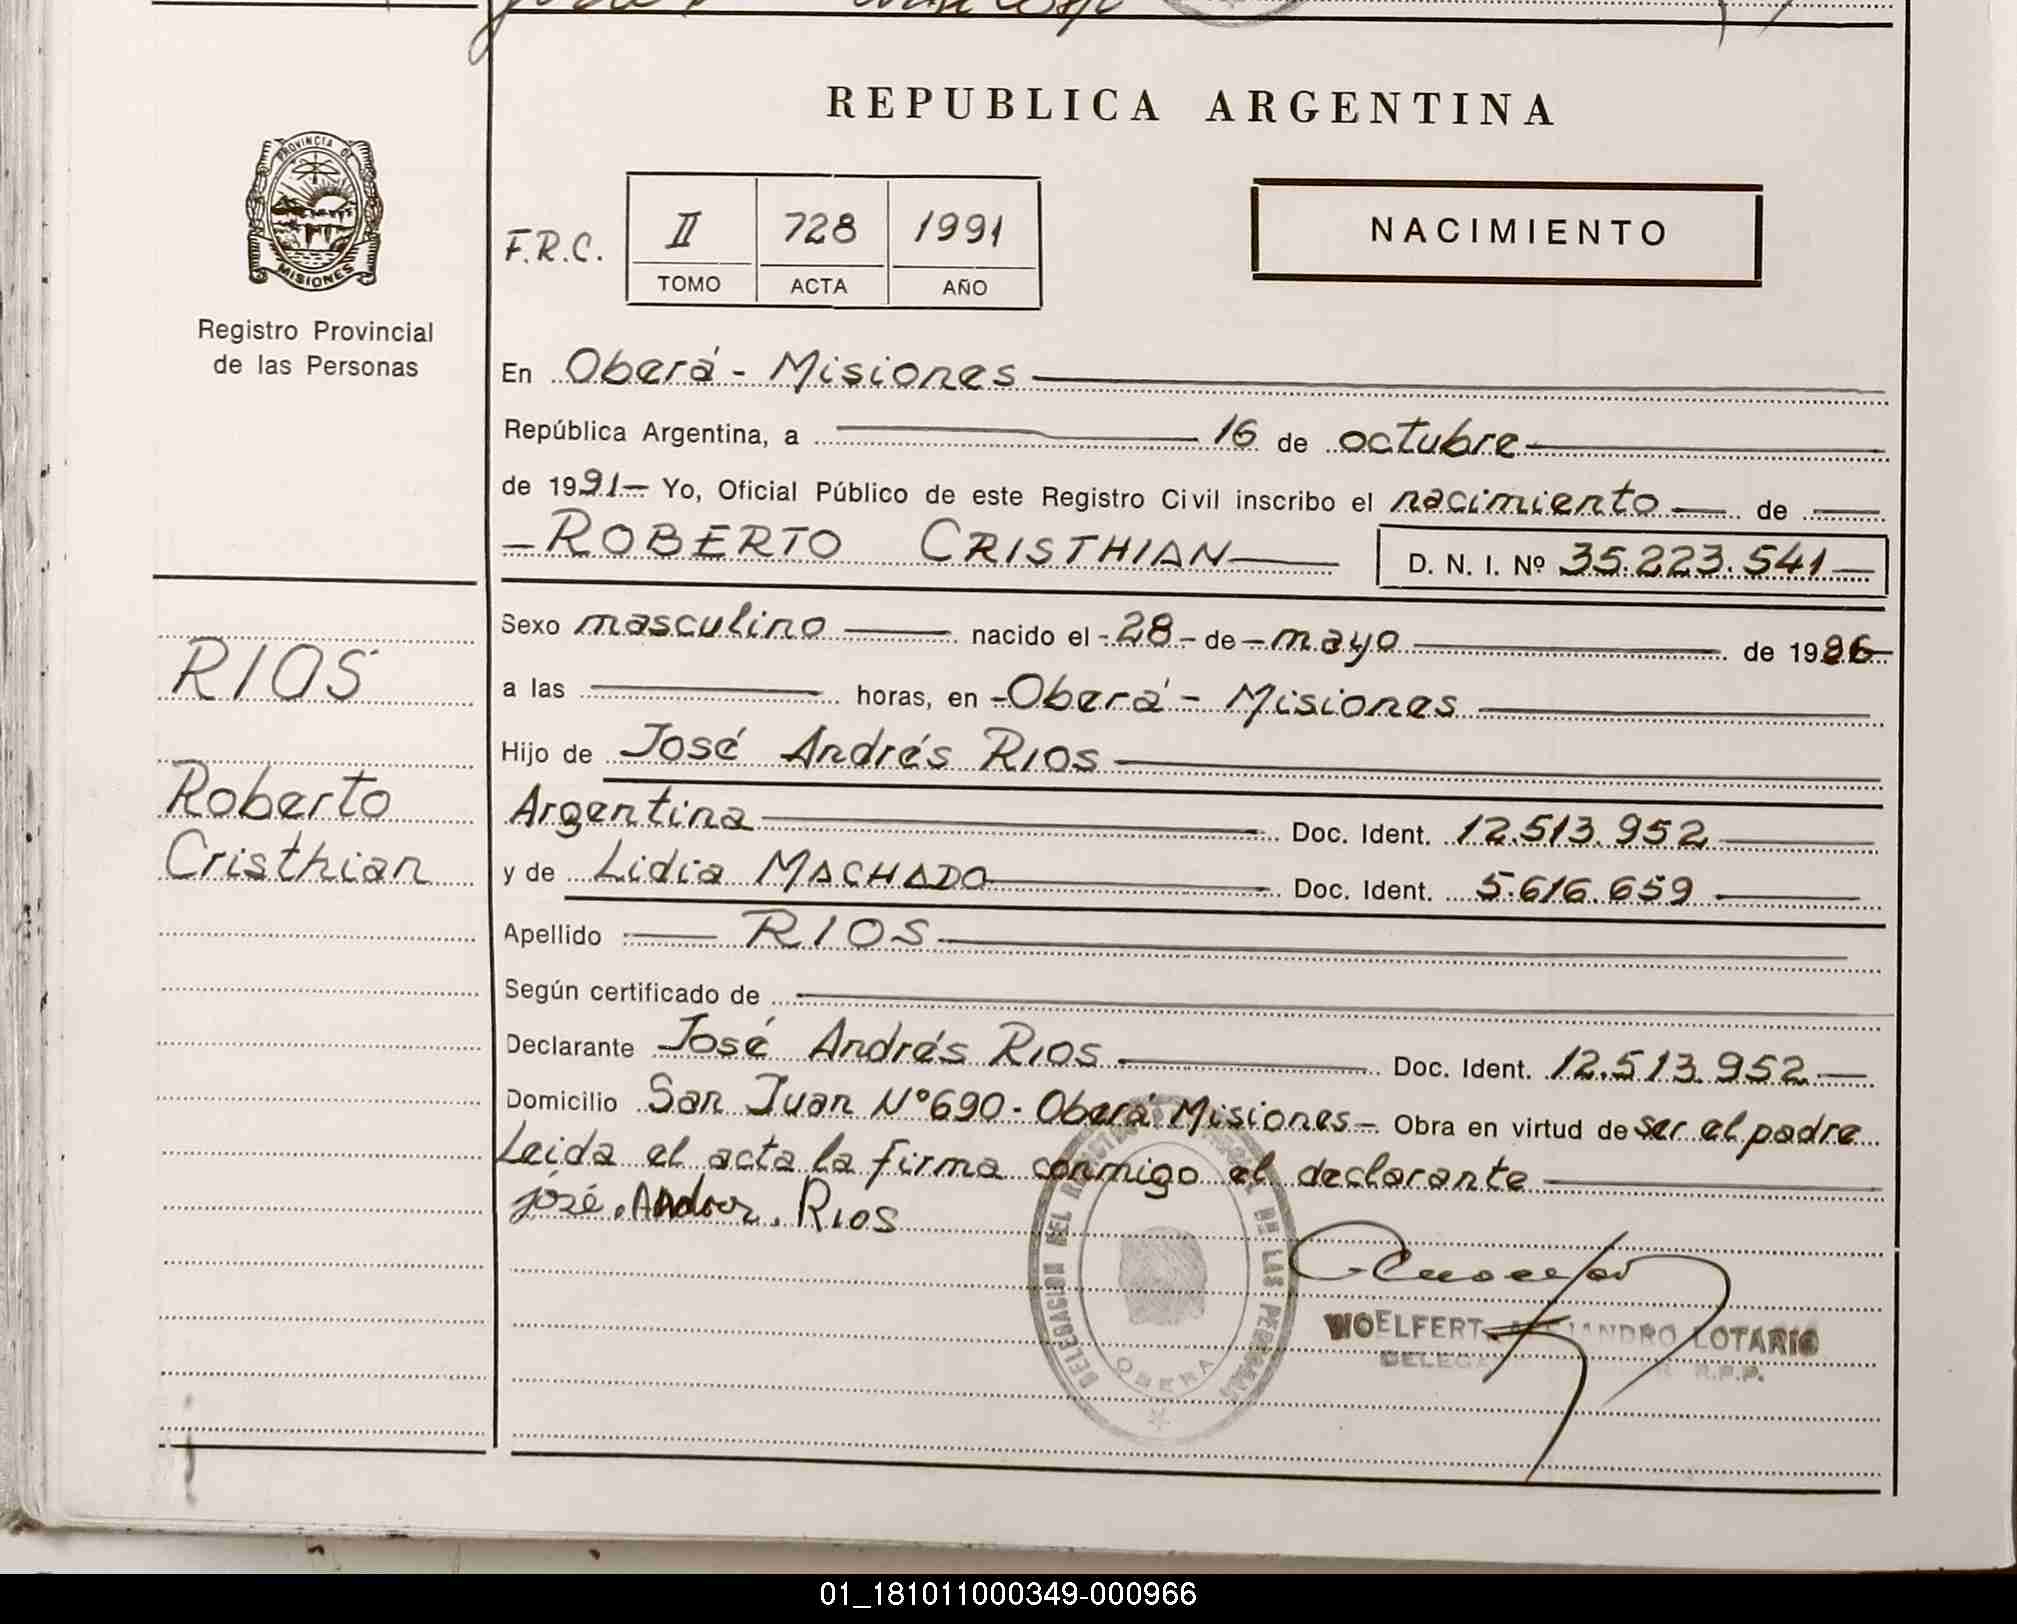 REPUBLICA ARGENTINA
PROVINCIA DE
MISIONES
Registro Provincial
de las Personas
F.R.C.
II 728 1991
TOMO ACTA AÑO
NACIMIENTO
En Oberá - Misiones
República Argentina, a 16 de octubre
de 1991 Yo, Oficial Público de este Registro Civil inscribo el nacimiento de
ROBERTO CRISTHIAN D. N. I. Nº 35.223.541
Sexo masculino nacido el 28 de mayo de 1986
a las horas, en Oberá - Misiones
Hijo de José Andrés RIOS
Argentina Doc. Ident. 12.513.952
y de Lidia MACHADO Doc. Ident. 5.616.659
Apellido RIOS
Según certificado de
Declarante José Andrés RIOS Doc. Ident. 12.513.952
Domicilio San Juan Nº 690 - Oberá Misiones Obra en virtud de ser el padre
Leida el acta la firma conmigo el declarante
RIOS
Roberto
Cristhian
José Rios
DELEGACION DEL DE LAS PERSONAS
OBERA
WOELFERT LOTARIO
R.P.P.
01_181011000349-000966